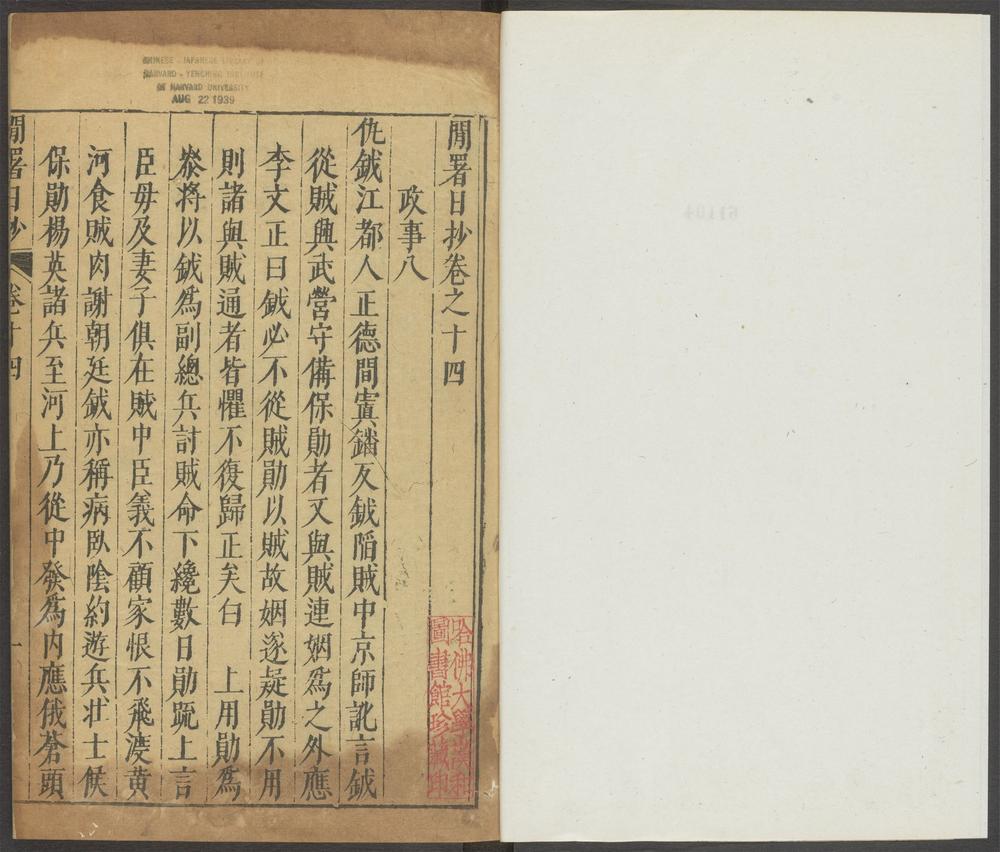 閒署日抄卷之十四
政事八
仇鉞江都人正德間寘鐇反鉞陷賊中京師訛言鉞
從賊與武營守備保勛者又與賊連姻爲之外應
李文正曰鉞必不從賊勛以賊故姻遂疑勛不用
則諸與賊通者皆懼不復歸正矣白　上用勛爲
叅將以鉞爲副總兵討賊命下纔數日勛䟽上言
臣母及妻子俱在賊中臣義不顧家恨不飛渡黃
河食賊肉謝朝廷鉞亦稱病臥陰約遊兵壯士候
保勛楊英諸兵至河上乃從中發爲内應俄蒼頭
閒署日抄
卷十四
一
哈佛大學漢和
圖書館珍藏印
CHINESE - JAPANESE LIBRARY OF
HARVARD - YENCHING INSTITUTE
AT HARVARD UNIVERSITY
AUG 22 1939